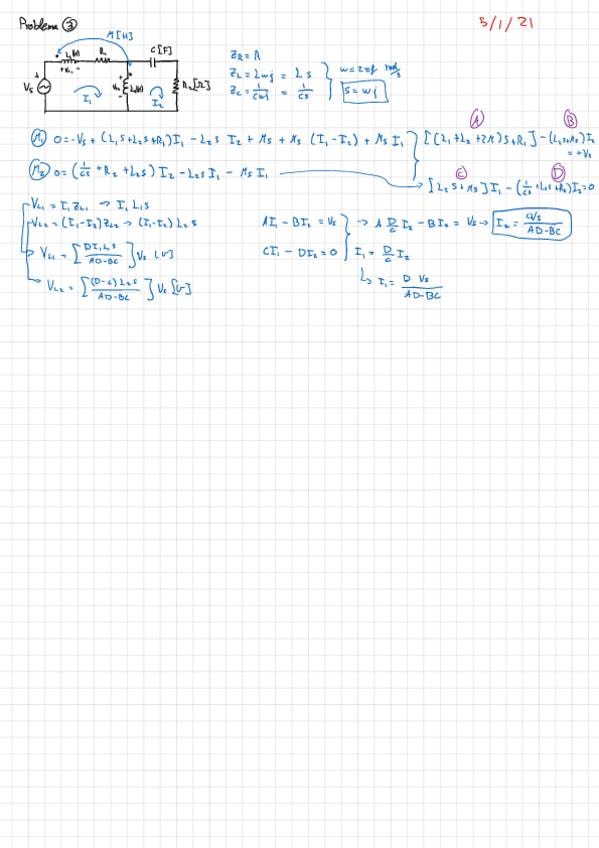 Problema ③
5/1/21
M[H]
L₁[H]
R₁
C[F]
+V_L₁-
V_S
I₁
V_L₂
L₂[H]
I₂
R₂[Ω]
Z_R = R
Z_L = Lwj = Ls
Z_C = 1/(Cwj) = 1/(Cs)
w=2πf rad/s
s=wj
M₁ 0=-V_S + (L₁s+L₂s+R₁)I₁ - L₂s I₂ + Ms + Ms (I₁-I₂) + Ms I₁
A B
[(L₁+L₂+2M)s+R₁]-(L₂s+Ms)I₂ = +V_S
M₂ 0=(1/(Cs) + R₂ + L₂s) I₂ - L₂s I₁ - Ms I₁
C D
[L₂s+Ms]I₁ - (1/(Cs)+L₂s+R₂)I₂=0
V_L₁ = I₁ Z_L₁ → I₁ L₁s
V_L₂ = (I₁-I₂)Z_L₂ → (I₁-I₂) L₂s
V_L₁ = [DI₁L₁s/(AD-BC)] V_S [V]
V_L₂ = [(D-C)L₂s/(AD-BC)] V_S [V]
AI₁ - BI₂ = V_S
CI₁ - DI₂ = 0
→ A D/C I₂ - BI₂ = V_S → I₂ = CV_S/(AD-BC)
I₁ = D/C I₂
↳ I₁ = D V_S/(AD-BC)